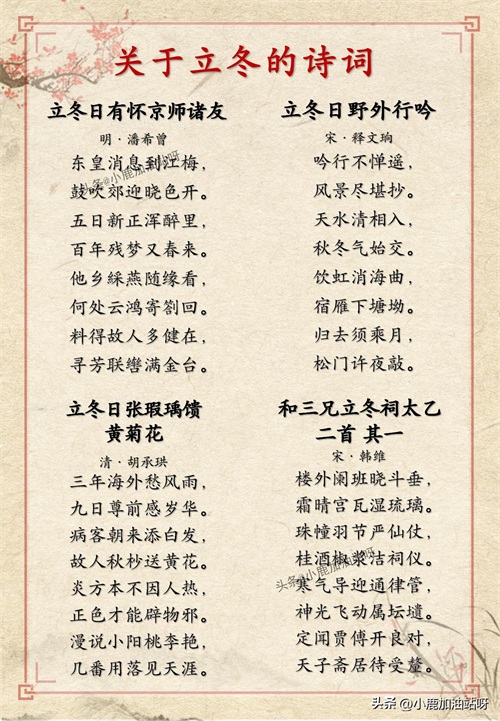 关于立冬的诗词
立冬日有怀京师诸友
明·潘希曾
东皇消息到江梅，
鼓吹郊迎晓色开。
五日新正浑醉里，
百年残梦又春来。
他乡綵燕随缘看，
何处云鸿寄劄回。
料得故人多健在，
寻芳联辔满金台。
立冬日野外行吟
宋·释文珦
吟行不惮遥，
风景尽堪抄。
天水清相入，
秋冬气始交。
饮虹消海曲，
宿雁下塘坳。
归去须乘月，
松门许夜敲。
立冬日张瑕瑀馈
黄菊花
清·胡承珙
三年海外愁风雨，
九日尊前感岁华。
病客朝来添白发，
故人秋杪送黄花。
炎方本不因人热，
正色才能辟物邪。
漫说小阳桃李艳，
几番用落见天涯。
和三兄立冬祠太乙
二首 其一
宋·韩维
楼外阑班晓斗垂，
霜晴宫瓦湿琉璃。
珠幢羽节严仙仗，
桂酒椒浆洁祠仪。
寒气导迎通律管，
神光飞动属坛壝。
定闻贾傅开良对，
天子斋居待受釐。
头条@小鹿加油站呀
头条@小鹿加油站呀
头条@小鹿加油站呀